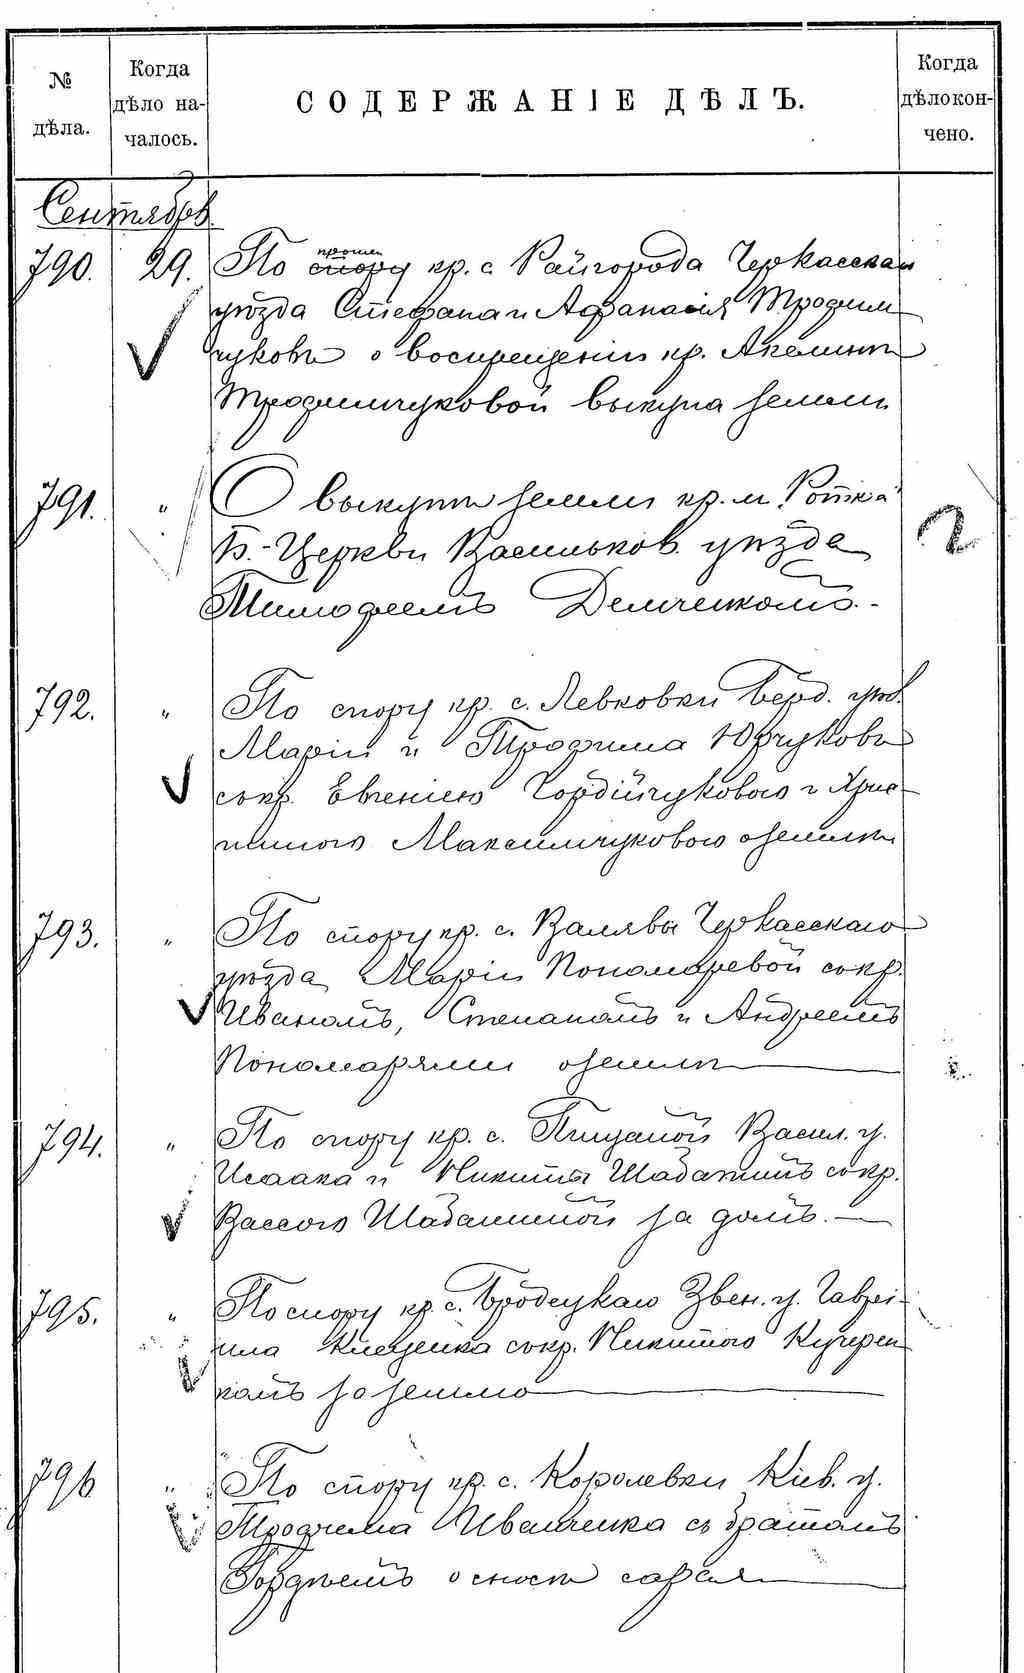 № дѣла.
Когда дѣло на-
чалось.
СОДЕРЖАНІЕ ДѢЛЪ.
Когда дѣло кон-
чено.
Сентябрь
790. 29. По прош. спору кр. с. Райгорода Черкасскаго
уѣзда Стефана и Афанасія Трофим
чуковъ о воспрещеніи кр. Акелинѣ
Трофимчуковой выкупа земли
791. „ О выкупѣ земли кр. м.
Б.-Церкви Васильков. уѣзда
Тимофеемъ
792. „ По спору кр. с. Левковки Берд. уѣз.
Маріи и Трофима Юрчуковъ
съ кр. Евгеніею Гордійчуковою и Хрис-
тиною Максимчуковою о землѣ
793. „ По спору кр. с. Валявы Черкасскаго
уѣзда Маріи Пономаревой съ кр.
Иваномъ, Степаномъ и Андреемъ
Пономарями о землѣ
794. „ По спору кр. с. Пищаной Васил. у.
Исаака и Никиты съ кр.
Вассою за домъ.
795. „ По спору кр. с. Бродецкаго Звен. у. Гаврі-
ила Клещенка съ кр. Никитою Кучерен
комъ за землю
796 „ По спору кр. с. Королевки Кіев. у.
Трофима Иващенка съ братомъ
Гордѣемъ о сносѣ сарая